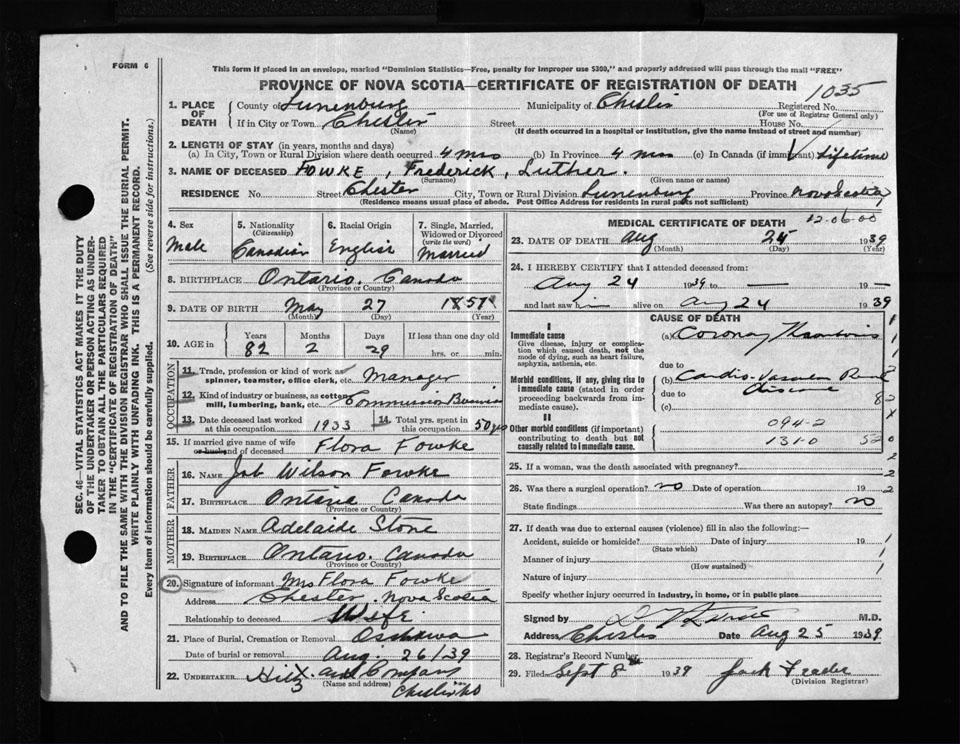 FORM 6
This form if placed in an envelope, marked "Dominion Statistics—Free, penalty for improper use $300," and properly addressed will pass through the mail "FREE"
PROVINCE OF NOVA SCOTIA—CERTIFICATE OF REGISTRATION OF DEATH
1035
SEC. 46—VITAL STATISTICS ACT MAKES IT THE DUTY
OF THE UNDERTAKER OR PERSON ACTING AS UNDER-
TAKER TO OBTAIN ALL THE PARTICULARS REQUIRED
IN THE "CERTIFICATE OF REGISTRATION OF DEATH"
AND TO FILE THE SAME WITH THE DIVISION REGISTRAR WHO SHALL ISSUE THE BURIAL PERMIT.
WRITE PLAINLY WITH UNFADING INK. THIS IS A PERMANENT RECORD.
Every item of information should be carefully supplied. (See reverse side for instructions.)
1. PLACE OF DEATH County of Lunenburg Municipality of Chester Registered No.
(For use of Registrar General only)
If in City or Town Chester Street House No.
(Name) (If death occurred in a hospital or institution, give the name instead of street and number)
2. LENGTH OF STAY (in years, months and days)
(a) In City, Town or Rural Division where death occurred 4 mos (b) In Province 4 mos (c) In Canada (if immigrant) Lifetime
3. NAME OF DECEASED FOWKE, Frederick, Luther.
(Surname) (Given name or names)
RESIDENCE No. Street Chester City, Town or Rural Division Lunenburg Province Nova Scotia
(Residence means usual place of abode. Post Office Address for residents in rural parts not sufficient)
4. Sex Male
5. Nationality (Citizenship) Canadian
6. Racial Origin English
7. Single, Married, Widowed or Divorced (write the word) Married
8. BIRTHPLACE Ontario. Canada
(Province or Country)
9. DATE OF BIRTH May 27 1857
(Month) (Day) (Year)
10. AGE in Years Months Days If less than one day old
82 2 29 hrs. or min.
OCCUPATION
11. Trade, profession or kind of work as spinner, teamster, office clerk, etc. Manager
12. Kind of industry or business, as cotton mill, lumbering, bank, etc. Commission Business
13. Date deceased last worked at this occupation 1933 14. Total yrs. spent in this occupation 50 yrs
15. If married give name of wife or husband of deceased Flora Fowke
FATHER
16. NAME Job Wilson Fowke
17. BIRTHPLACE Ontario Canada
(Province or Country)
MOTHER
18. MAIDEN NAME Adelaide Stone
19. BIRTHPLACE Ontario. Canada
(Province or Country)
20. Signature of informant Mrs Flora Fowke
Address Chester. Nova Scotia
Relationship to deceased Wife
21. Place of Burial, Cremation or Removal Oshawa
Date of burial or removal Aug. 26/39
22. UNDERTAKER Hiltz and Company
(Name and address) Chester NS
MEDICAL CERTIFICATE OF DEATH
12-06-00
23. DATE OF DEATH Aug 25 1939
(Month) (Day) (Year)
24. I HEREBY CERTIFY that I attended deceased from:
Aug 24 1939 to — 19—
and last saw him alive on Aug 24 1939
CAUSE OF DEATH
I
Immediate cause
Give disease, injury or complication which caused death, not the mode of dying, such as heart failure, asphyxia, asthenia, etc.
(a) Coronary Thrombosis
due to
Morbid conditions, if any, giving rise to immediate cause (stated in order proceeding backwards from immediate cause).
(b) Cardio-Vascular Renal
due to disease
(c)
II
Other morbid conditions (if important) contributing to death but not causally related to immediate cause.
094-2
131-0
25. If a woman, was the death associated with pregnancy?
26. Was there a surgical operation? no Date of operation 19
State findings Was there an autopsy? no
27. If death was due to external causes (violence) fill in also the following:—
Accident, suicide or homicide? Date of injury 19
(State which)
Manner of injury
(How sustained)
Nature of injury
Specify whether injury occurred in industry, in home, or in public place
Signed by M.D.
Address Chester Date Aug 25 1939
28. Registrar's Record Number
29. Filed Sept 8th 1939
(Division Registrar)